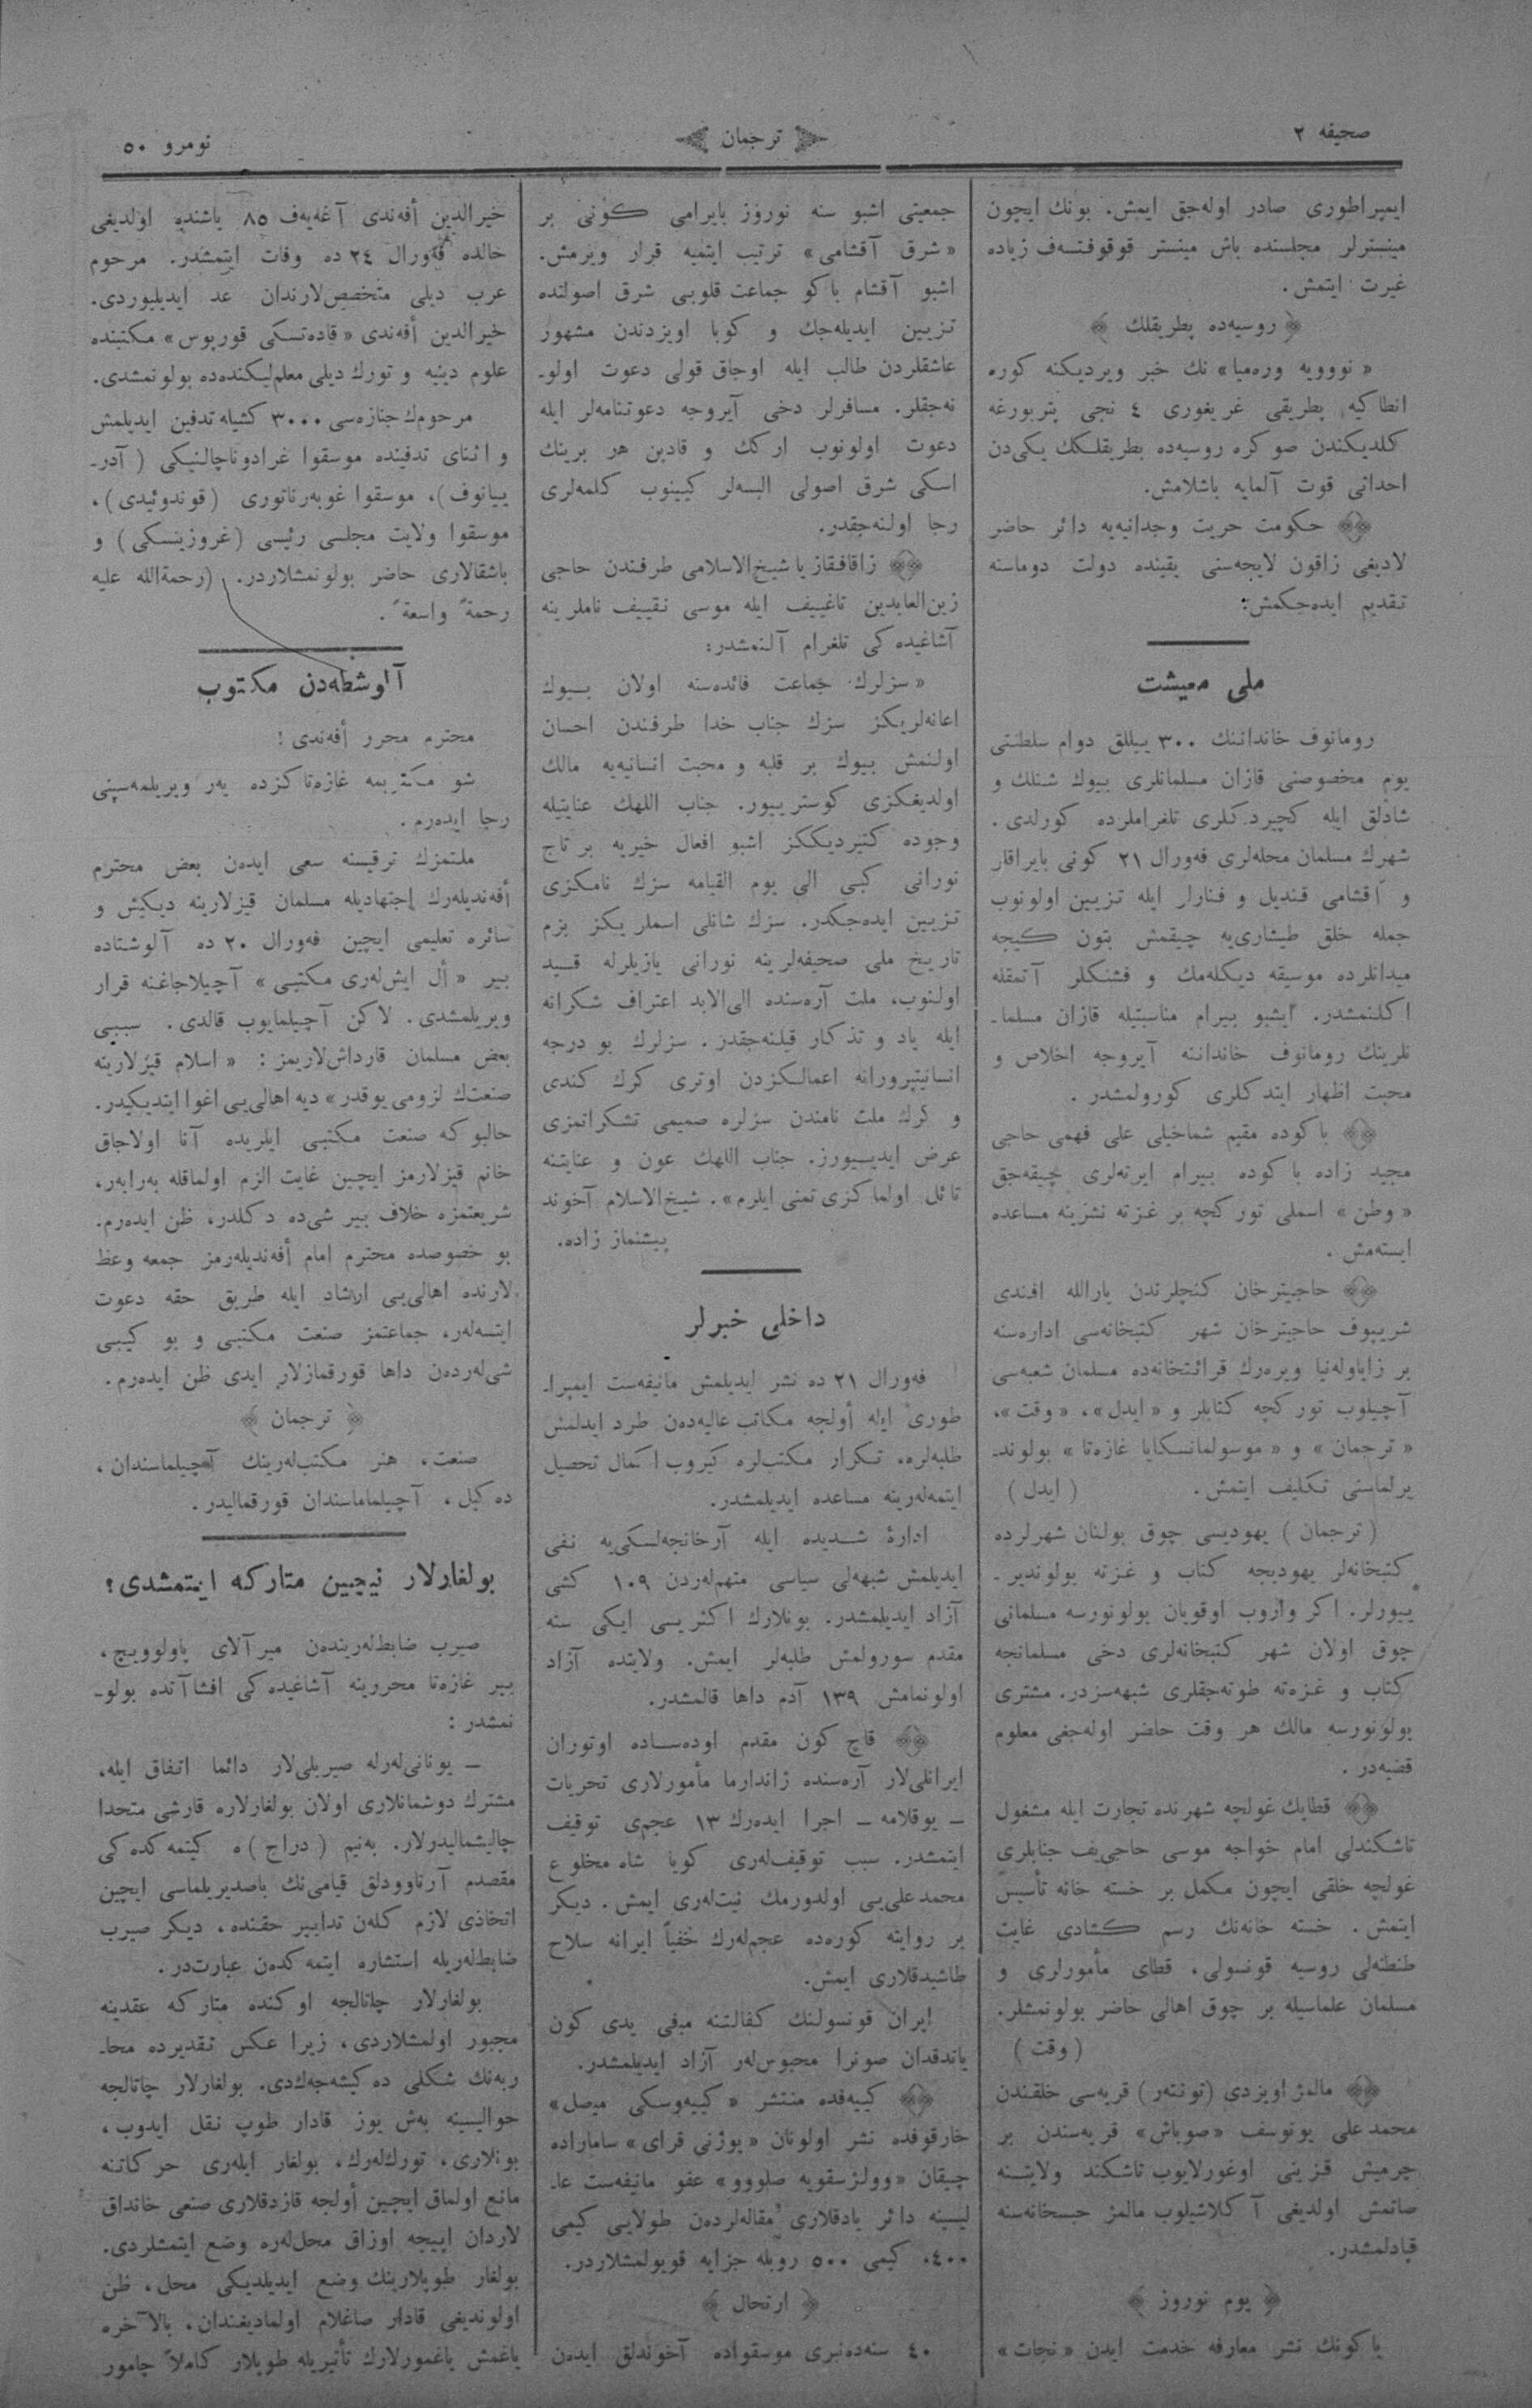 صحيفه ٢
ترجمان
نومرو ٥٠
ايمپراطورى صادر اوله‌جق ايمش. بونك ايچون
مينسترلر مجلسنده باش مينستر قوقوفتسه‌ف زياده
غيرت ايتمش.
روسيه‌ده پطريقلك
« نوويه وره‌ميا» نك خبر ويرديكنه كوره
انطاكيه پطريقى غريغورى ٤ نجى پتربورغه
كلديكندن صوكره روسيه‌ده بطريقلكك يكى‌دن
احداثى قوت آلمايه باشلامش.
حكومت حريت وجدانيه‌يه دائر حاضر
لاديغى زاقون لايحه‌سنى يقينده دولت دوماسنه
تقديم ايده‌جكمش:
ملى معيشت
رومانوف خانداننك ٣٠٠ ييللق دوام سلطنتى
يوم مخصوصنى قازان مسلمانلرى بيوك شنلك و
شادلق ايله كچيردكلرى تلغراملرده كورلدى.
شهرك مسلمان محله‌لرى فه‌ورال ٢١ كونى بايراقلر
و آقشامى قنديل و فنارلر ايله تزيين اولونوب
جمله خلق طيشارى‌يه چيقمش بتون كيجه
ميدانلرده موسيقه ديكله‌مك و فشنكلر آتمقله
اكلنمشدر. ايشبو بيرام مناسبتيله قازان مسلما-
نلرينك رومانوف خانداننه آيروجه اخلاص و
محبت اظهار ايتدكلرى كورولمشدر.
باكوده مقيم شماخيلى على فهمى حاجى
مجيد زاده باكوده بيرام ايرته‌لرى چيقه‌جق
« وطن » اسملى توركچه بر غزته نشرينه مساعده
ايسته‌مش.
حاجيترخان كنچلرندن يارالله افندى
شريپوف حاجيترخان شهر كتبخانه‌سى اداره‌سنه
بر زاياوله‌نيا ويره‌رك قرائتخانه‌ده مسلمان شعبه‌سى
آچيلوب توركچه كتابلر و «ايدل»، «وقت»،
« ترجمان » و « موسولمانسكايا غازه‌تا » بولوند-
يرلماسنى تكليف ايتمش. (ايدل)
(ترجمان) يهوديسى چوق بولنان شهرلرده
كتبخانه‌لر يهوديجه كتاب و غزته بولوندير-
ييورلر. اكر واروب اوقويان بولونورسه مسلمانى
چوق اولان شهر كتبخانه‌لرى دخى مسلمانجه
كتاب و غزه‌ته طوته‌جقلرى شبهه‌سزدر. مشترى
بولونورسه مالك هر وقت حاضر اوله‌جغى معلوم
قضيه‌در.
قطايك غولجه شهرنده تجارت ايله مشغول
تاشكندلى امام خواجه موسى حاجى‌يف جنابلرى
غولجه خلقى ايچون مكمل بر خسته خانه تأسيس
ايتمش. خسته خانه‌نك رسم كشادى غايت
طنطنه‌لى روسيه قونسولى، قطاى مأمورلرى و
مسلمان علماسيله بر چوق اهالى حاضر بولونمشلر.
(وقت)
مالمژ اويزدى (تونته‌ر) قريه‌سى خلقندن
محمدعلى يونوسف «صوباش» قريه‌سندن بر
چرميش قزينى اوغورلايوب تاشكند ولايتنه
صاتمش اولديغى آكلاشيلوب مالمژ حبسخانه‌سنه
قپادلمشدر.
يوم نوروز
باكونك نشر معارفه خدمت ايدن «نجات»
جمعيتى اشبو سنه نوروز بايرامى كونى بر
« شرق آقشامى » ترتيب ايتميه قرار ويرمش.
اشبو آقشام باكو جماعت قلوبى شرق اصولنده
تزيين ايديله‌جك و كوبا اويزدندن مشهور
عاشقلردن طالب ايله اوجاق قولى دعوت اولو-
نه‌جقلر. مسافرلر دخى آيروجه دعوتنامه‌لر ايله
دعوت اولونوب اركك و قادين هر برينك
اسكى شرق اصولى البسه‌لر كيينوب كلمه‌لرى
رجا اولنه‌جقدر.
زاقافقازيا شيخ‌الاسلامى طرفندن حاجى
زين‌العابدين تاغييف ايله موسى نقييف ناملرينه
آشاغيده‌كى تلغرام آلنمشدر:
« سزلرك جماعت فائده‌سنه اولان بيوك
اعانه‌لريكز سزك جناب خدا طرفندن احسان
اولنمش بيوك بر قلبه و محبت انسانيه‌يه مالك
اولديغكزى كوسترييور. جناب اللهك عنايتيله
وجوده كتيرديككز اشبو افعال خيريه بر تاج
نورانى كبى الى يوم القيامه سزك نامكزى
تزيين ايده‌جكدر. سزك شانلى اسملريكز بزم
تاريخ ملى صحيفه‌لرينه نورانى يازيلرله قيد
اولنوب، ملت آره‌سنده الى‌الابد اعتراف شكرانه
ايله ياد و تذكار قيلنه‌جقدر. سزلرك بو درجه
انسانيتپرورانه اعمالكزدن اوترى كرك كندى
و كرك ملت نامندن سزلره صميمى تشكراتمزى
عرض ايدييورز. جناب اللهك عون و عنايتنه
نائل اولماكزى تمنى ايلرم». شيخ‌الاسلام آخوند
پيشنماز زاده.
داخلى خبرلر
فه‌ورال ٢١ ده نشر ايديلمش مانيفه‌ست ايمپرا-
طورى ايله أولجه مكاتب عاليه‌دن طرد ايدلمش
طلبه‌لره، تكرار مكتب‌لره كيروب اكمال تحصيل
ايتمه‌له‌رينه مساعده ايديلمشدر.
ادارهٔ شديده ايله آرخانجه‌لسكى‌يه نفى
ايديلمش شبهه‌لى سياسى متهم‌له‌ردن ١٠٩ كشى
آزاد ايديلمشدر. بونلارك اكثريسى ايكى سنه
مقدم سورولمش طلبه‌لر ايمش. ولايتده آزاد
اولونمامش ١٣٩ آدم داها قالمشدر.
قاچ كون مقدم اوده‌ساده اوتوران
ايرانلى‌لار آره‌سنده ژاندارما مأمورلارى تحريات
ـ يوقلامه ـ اجرا ايده‌رك ١٣ عجم‌ى توقيف
ايتمشدر. سبب توقيف‌له‌رى كويا شاه مخلوع
محمدعلى‌يى اولدورمك نيت‌له‌رى ايمش. ديكر
بر روايته كوره‌ده عجم‌له‌رك خفياً ايرانه سلاح
طاشيدقلارى ايمش.
ايران قونسولنك كفالتنه مبنى يدى كون
ياتدقدان صونرا محبوس‌لر آزاد ايديلمشدر.
كييه‌فده منتشر « كييه‌وسكى ميصل»
خارقوفده نشر اولونان «يوژنى قراى» ساماراده
چيقان «وولژسقويه صلووو» عفو مانيفه‌ست عا-
ليسينه دائر يازدقلارى مقاله‌لردن طولايى كيمى
٤٠٠، كيمى ٥٠٠ روبله جزايه قويولمشلاردر.
ارتحال
٤٠ سنه‌ده‌نبرى موسقواده آخوندلق ايده‌ن
خيرالدين أفه‌ندى آغه‌يه‌ف ٨٥ ياشنده اولديغى
حالده فه‌ورال ٢٤ ده وفات ايتمشدر. مرحوم
عرب ديلى متخصص‌لارندان عد ايديليوردى.
خيرالدين أفه‌ندى «قاده‌تسكى قورپوس» مكتبنده
علوم دينيه و تورك ديلى معلم‌ليكنده‌ده بولونمشدى.
مرحومك جنازه‌سى ٣٠٠٠ كشيله تدفين ايديلمش
و اثناى تدفينده موسقوا غرادوناچالنيكى (آدر-
ييانوف)، موسقوا غوبه‌رناتورى (قوندوئيدى)،
موسقوا ولايت مجلسى رئيسى (غروزينسكى) و
باشقالارى حاضر بولونمشلاردر. (رحمةالله عليه
رحمةً واسعةً.
آلوشطه‌دن مكتوب
محترم محرر أفه‌ندى!
شو مكتوبمه غازه‌تاكزده يه‌ر ويريلمه‌سينى
رجا ايده‌رم.
ملتمزك ترقيسنه سعى ايده‌ن بعض محترم
أفه‌نديله‌رك إجتهاديله مسلمان قيزلارينه ديكيش و
سائره تعليمى ايچين فه‌ورال ٢٠ ده آلوشتاده
بير «أل ايش‌له‌رى مكتبى» آچيلاجاغنه قرار
ويريلمشدى. لاكن آچيلمايوب قالدى. سببى
بعض مسلمان قارداش‌لاريمز: «اسلام قيزلارينه
صنعتك لزومى يوقدر» ديه اهالى‌يى اغوا ايتديكيدر.
حالبوكه صنعت مكتبى ايلريده آنا اولاجاق
خانم قيزلارمز ايچين غايت الزم اولماقله به‌رابه‌ر،
شريعتمزه خلاف بير شى‌ده دكلدر، ظن ايده‌رم.
بو خصوصده محترم امام أفه‌نديله‌رمز جمعه وعظ
لارنده اهالى‌يى ارشاد ايله طريق حقه دعوت
ايتسه‌له‌ر، جماعتمز صنعت مكتبى و بو كيبى
شى‌له‌رده‌ن داها قورقمازلار ايدى ظن ايده‌رم.
ترجمان
صنعت، هنر مكتب‌له‌رينك آچيلماسندان،
ده‌كيل، آچيلماماسندان قورقماليدر.
بولغارلار نيچين متاركه ايتمشدى؟
صيرب ضابط‌له‌رينده‌ن ميرآلاى پاولوويچ،
بير غازه‌تا محررينه آشاغيده‌كى افشاآتده بولو-
نمشدر:
ـ يونانى‌له‌رله صيربلى‌لار دائما اتفاق ايله،
مشترك دوشمانلارى اولان بولغارلاره قارشى متحدا
چاليشماليدرلار. به‌نيم (دراچ)ه كيتمه‌كده‌كى
مقصدم آرناوودلق قيامى‌نك باصديريلماسى ايچين
اتخاذى لازم كله‌ن تدابير حقنده، ديكر صيرب
ضابط‌له‌ريله استشاره ايتمه‌كده‌ن عبارت‌در.
بولغارلار چاتالجه اوكنده متاركه عقدينه
مجبور اولمشلاردى، زيرا عكس تقديرده محا-
ربه‌نك شكلى ده‌كيشه‌جه‌ك‌دى. بولغارلار چاتالجه
حواليسينه به‌ش يوز قادار طوپ نقل ايدوب،
بونلارى، تورك‌له‌رك، بولغار ايله‌رى حركاتنه
مانع اولماق ايچين أولجه قازدقلارى صنعى خانداق
لاردان اپيجه اوزاق محل‌له‌ره وضع ايتمشلردى.
بولغار طوپلارينك وضع ايديلديكى محل، ظن
اولونديغى قادار صاغلام اولماديغندان، بالآخره
ياغمش ياغمورلارك تأثيريله طوپلار كاملاً چامور